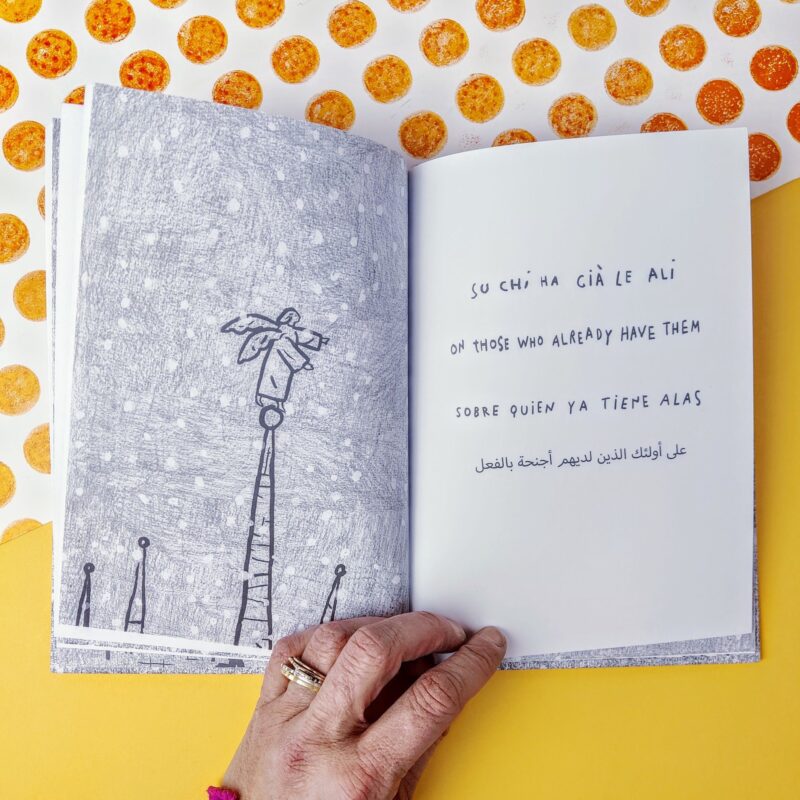 SU CHI HA GIÀ LE ALI
ON THOSE WHO ALREADY HAVE THEM
SOBRE QUIEN YA TIENE ALAS
على أولئك الذين لديهم أجنحة بالفعل